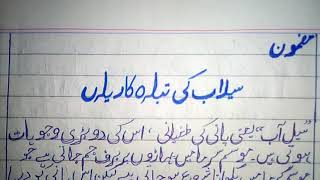 مضمون
سیلاب کی تباہ کاریاں
"سیل آب" یعنی پانی کی طغیانی، اس کی دو بڑی وجوہات
ہوتی ہیں۔ موسم سرما میں پہاڑوں پر برف جم جاتی ہے جو